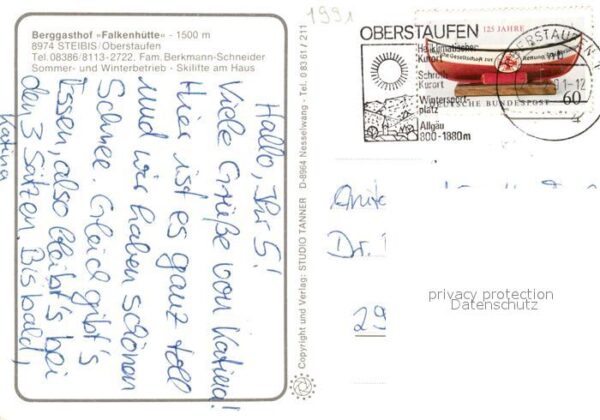 Berggasthof »Falkenhütte« - 1500 m
8974 STEIBIS/Oberstaufen
Tel. 08386/8113-2722. Fam. Berkmann-Schneider
Sommer- und Winterbetrieb - Skilifte am Haus
Hallo, Ihr 5!
Viele Grüße von Katina!
Hier ist es ganz toll
und wir haben schönen
Schnee. Gleich gibt's
Essen, also bleibt's bei
den 3 Sätzen. Bis bald,
Katina
Copyright und Verlag: STUDIO TANNER D-8964 Nesselwang - Tel. 08361/211
1991
OBERSTAUFEN
Heilklimatischer
Kurort
Schroth-
Kurort
Wintersport-
platz
Allgäu
800-1880m
125 JAHRE
DEUTSCHE BUNDESPOST
60
OBERSTAUFEN
Dr.
29
privacy protection
Datenschutz